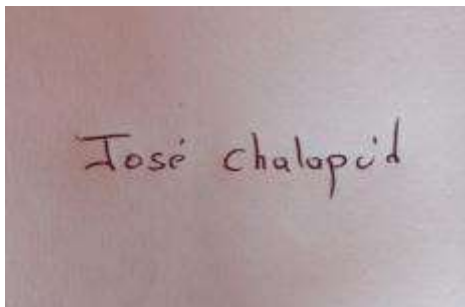 José Chalapúd